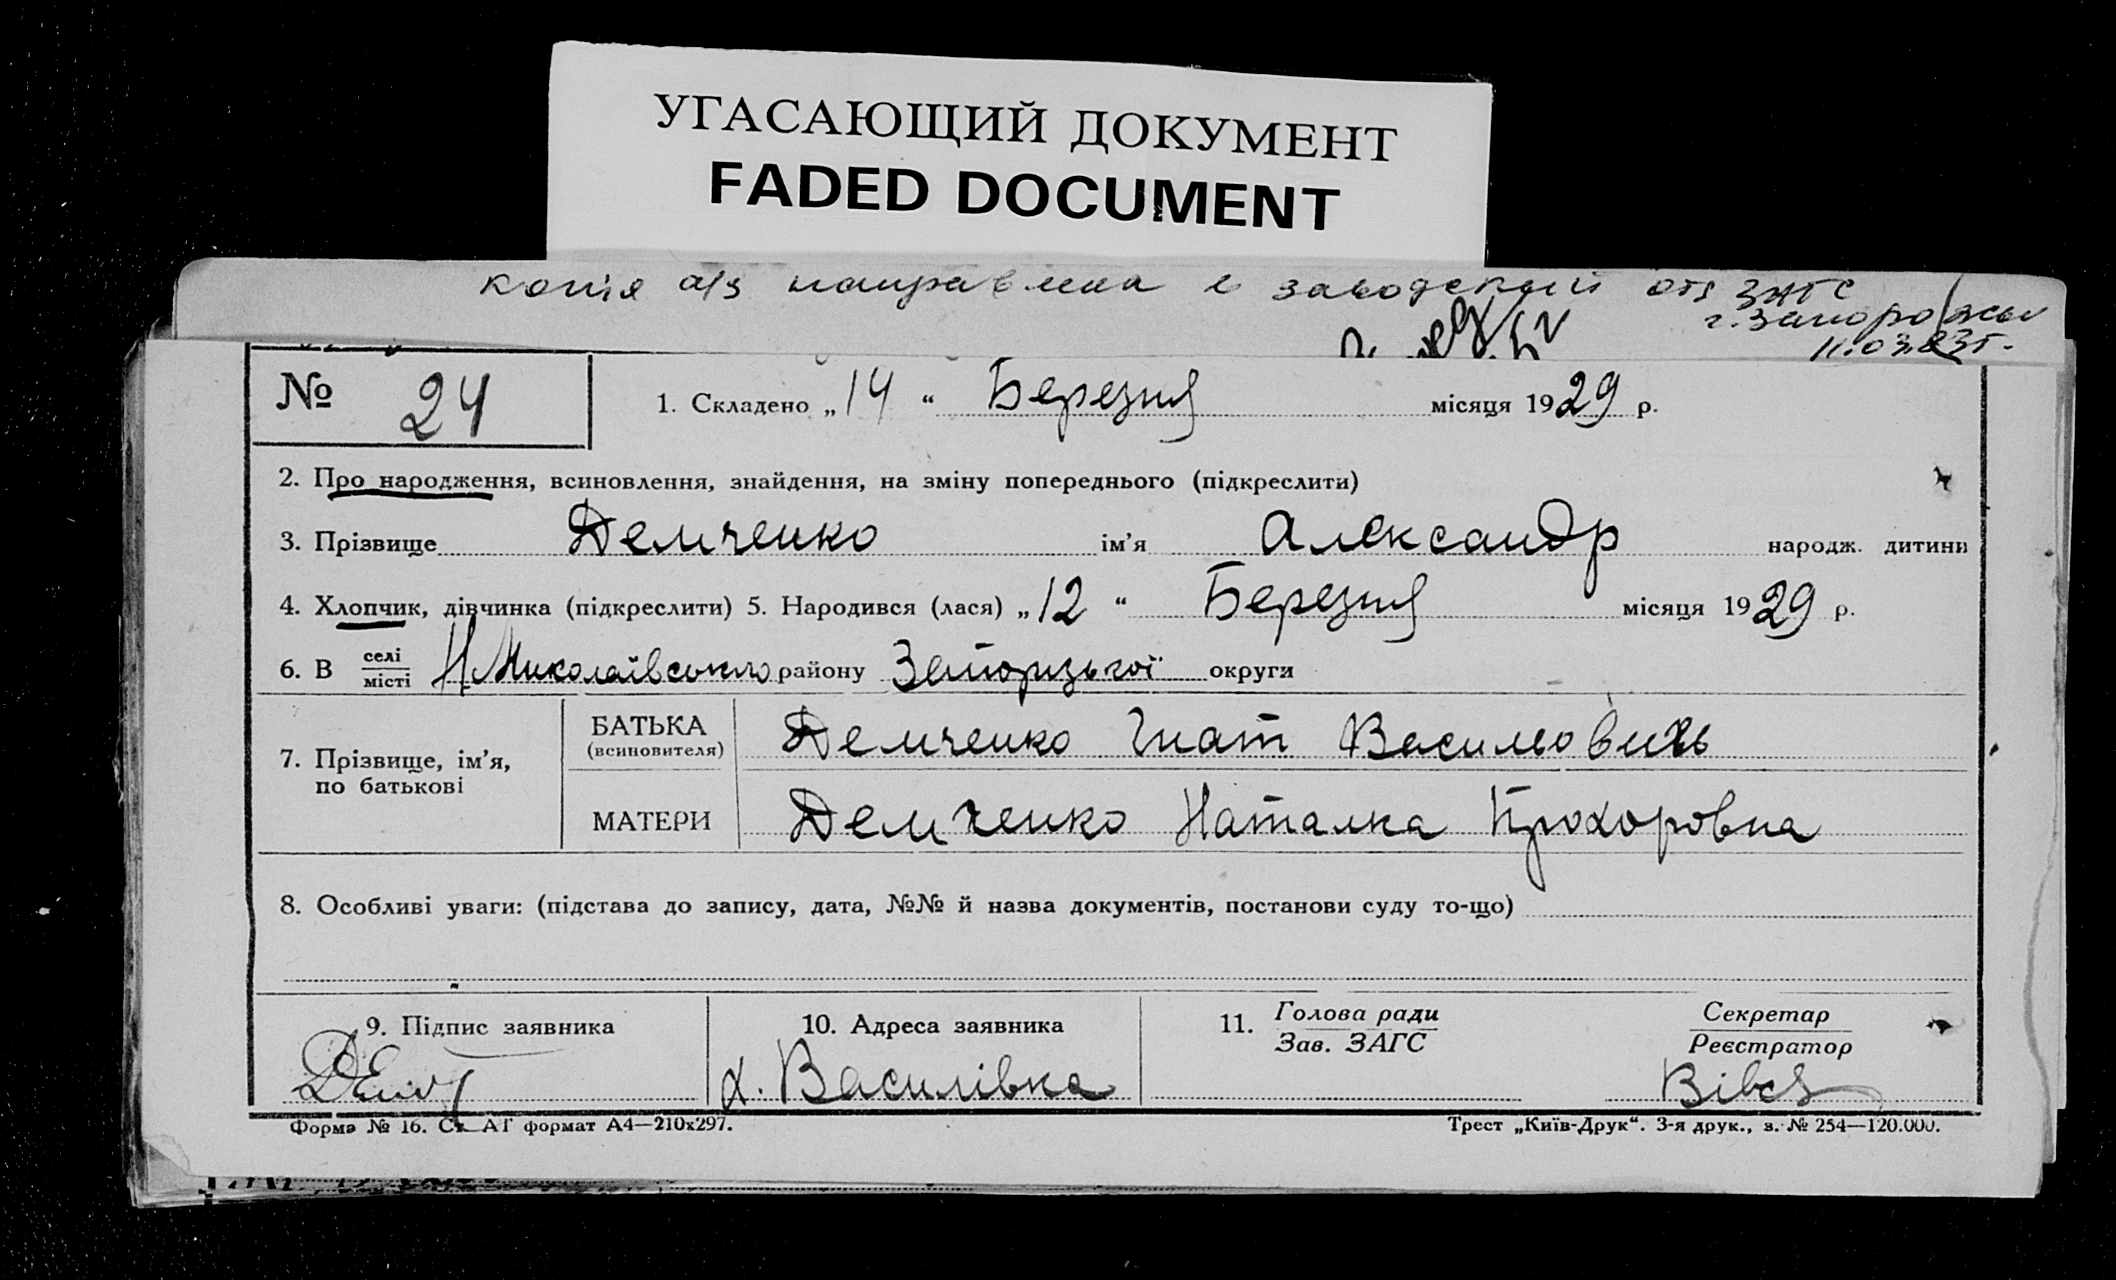 УГАСАЮЩИЙ ДОКУМЕНТ
FADED DOCUMENT
копія а/з направлена в заводский отд ЗАГС
г. Запорожья
11.03.83г.
№ 24
1. Складено „14“ Березня місяця 1929 р.
2. Про народження, всиновлення, знайдення, на зміну попереднього (підкреслити)
3. Прізвище Демченко ім’я Александр народж. дитини
4. Хлопчик, дівчинка (підкреслити) 5. Народився (лася) „12“ Березня місяця 1929 р.
6. В селі місті Н Миколаївського району Запорізької округи
7. Прізвище, ім’я, по батькові
БАТЬКА (всиновителя) Демченко Гнат Васильовичь
МАТЕРИ Демченко Наталка Прохоровна
8. Особливі уваги: (підстава до запису, дата, №№ й назва документів, постанови суду то-що)
9. Підпис заявника
10. Адреса заявника
х. Василівка
11. Голова ради
Зав. ЗАГС
Секретар
Реєстратор
Форма № 16. Ст. АГ формат А4—210х297.
Трест „Київ-Друк“. 3-я друк., з. № 254—120.000.